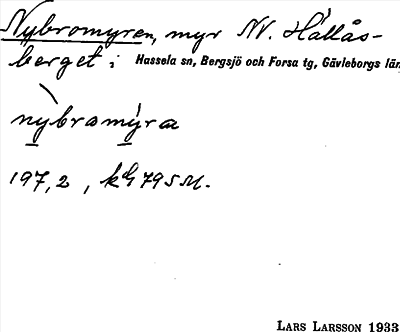 Nybromyren, myr NV. Hållås-
berget i Hassela sn, Bergsjö och Forsa tg, Gävleborgs län
nỳbramýra
197,2, 
LARS LARSSON 1933